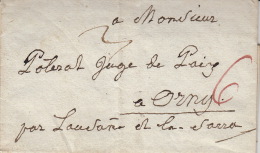 a Monsieur
3
Polerat Juge de Paix
à Orny 6
par Lausane et la Sarra